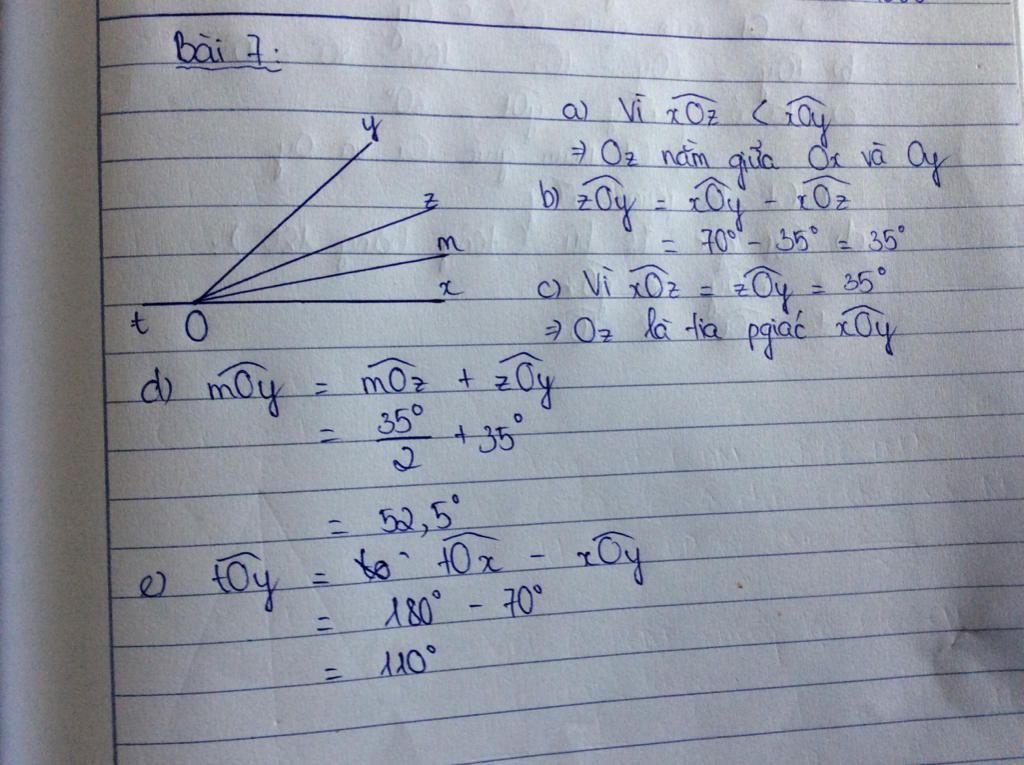 Bài 7:
y
z
m
x
t O
a) Vì xOz < xOy
⇒ Oz nằm giữa Ox và Oy
b) zOy = xOy - xOz
= 70° - 35° = 35°
c) Vì xOz = zOy = 35°
⇒ Oz là tia pgiác xOy
d) mOy = mOz + zOy
= 35°/2 + 35°
= 52,5°
e) tOy = tOx - xOy
= 180° - 70°
= 110°